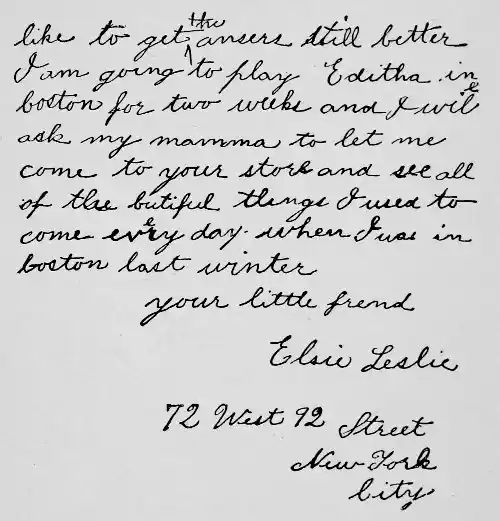 like to get the ansers still better
I am going to play Editha in
boston for two weeks and I will
ask my mamma to let me
come to your store and see all
of the butiful things I used to
come every day when I was in
boston last winter
your little frend
Elsie Leslie
72 West 92 Street
New York
City